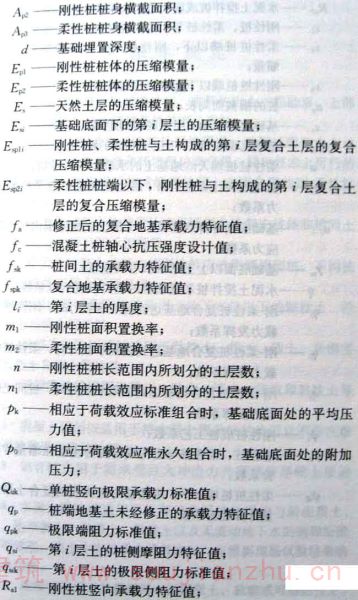 A_p2——刚性桩桩身横截面积；
A_p3——柔性桩桩身横截面积；
d——基础埋置深度；
E_p1——刚性桩桩体的压缩模量；
E_p2——柔性桩桩体的压缩模量；
E_s——天然土层的压缩模量；
E_si——基础底面下的第i层土的压缩模量；
E_sp1i——刚性桩、柔性桩与土构成的第i层复合土层的复合
压缩模量；
E_sp2i——柔性桩桩端以下，刚性桩与土构成的第i层复合土
层的复合压缩模量；
f_a——修正后的复合地基承载力特征值；
f_c——混凝土桩轴心抗压强度设计值；
f_sk——桩间土的承载力特征值；
f_spk——复合地基承载力特征值；
l_i——第i层土的厚度；
m_1——刚性桩面积置换率；
m_2——柔性桩面积置换率；
n——刚性桩桩长范围内所划分的土层数；
n_1——柔性桩桩长范围内所划分的土层数；
p_k——相应于荷载效应标准组合时，基础底面处的平均压
力值；
p_0——相应于荷载效应准永久组合时，基础底面处的附加
压力；
Q_uk——单桩竖向极限承载力标准值；
q_p——桩端地基土未经修正的承载力特征值；
q_pk——极限端阻力标准值；
q_si——第i层土的桩侧摩阻力特征值；
q_sik——第i层土的极限侧阻力标准值；
R_a1——刚性桩竖向承载力特征值；